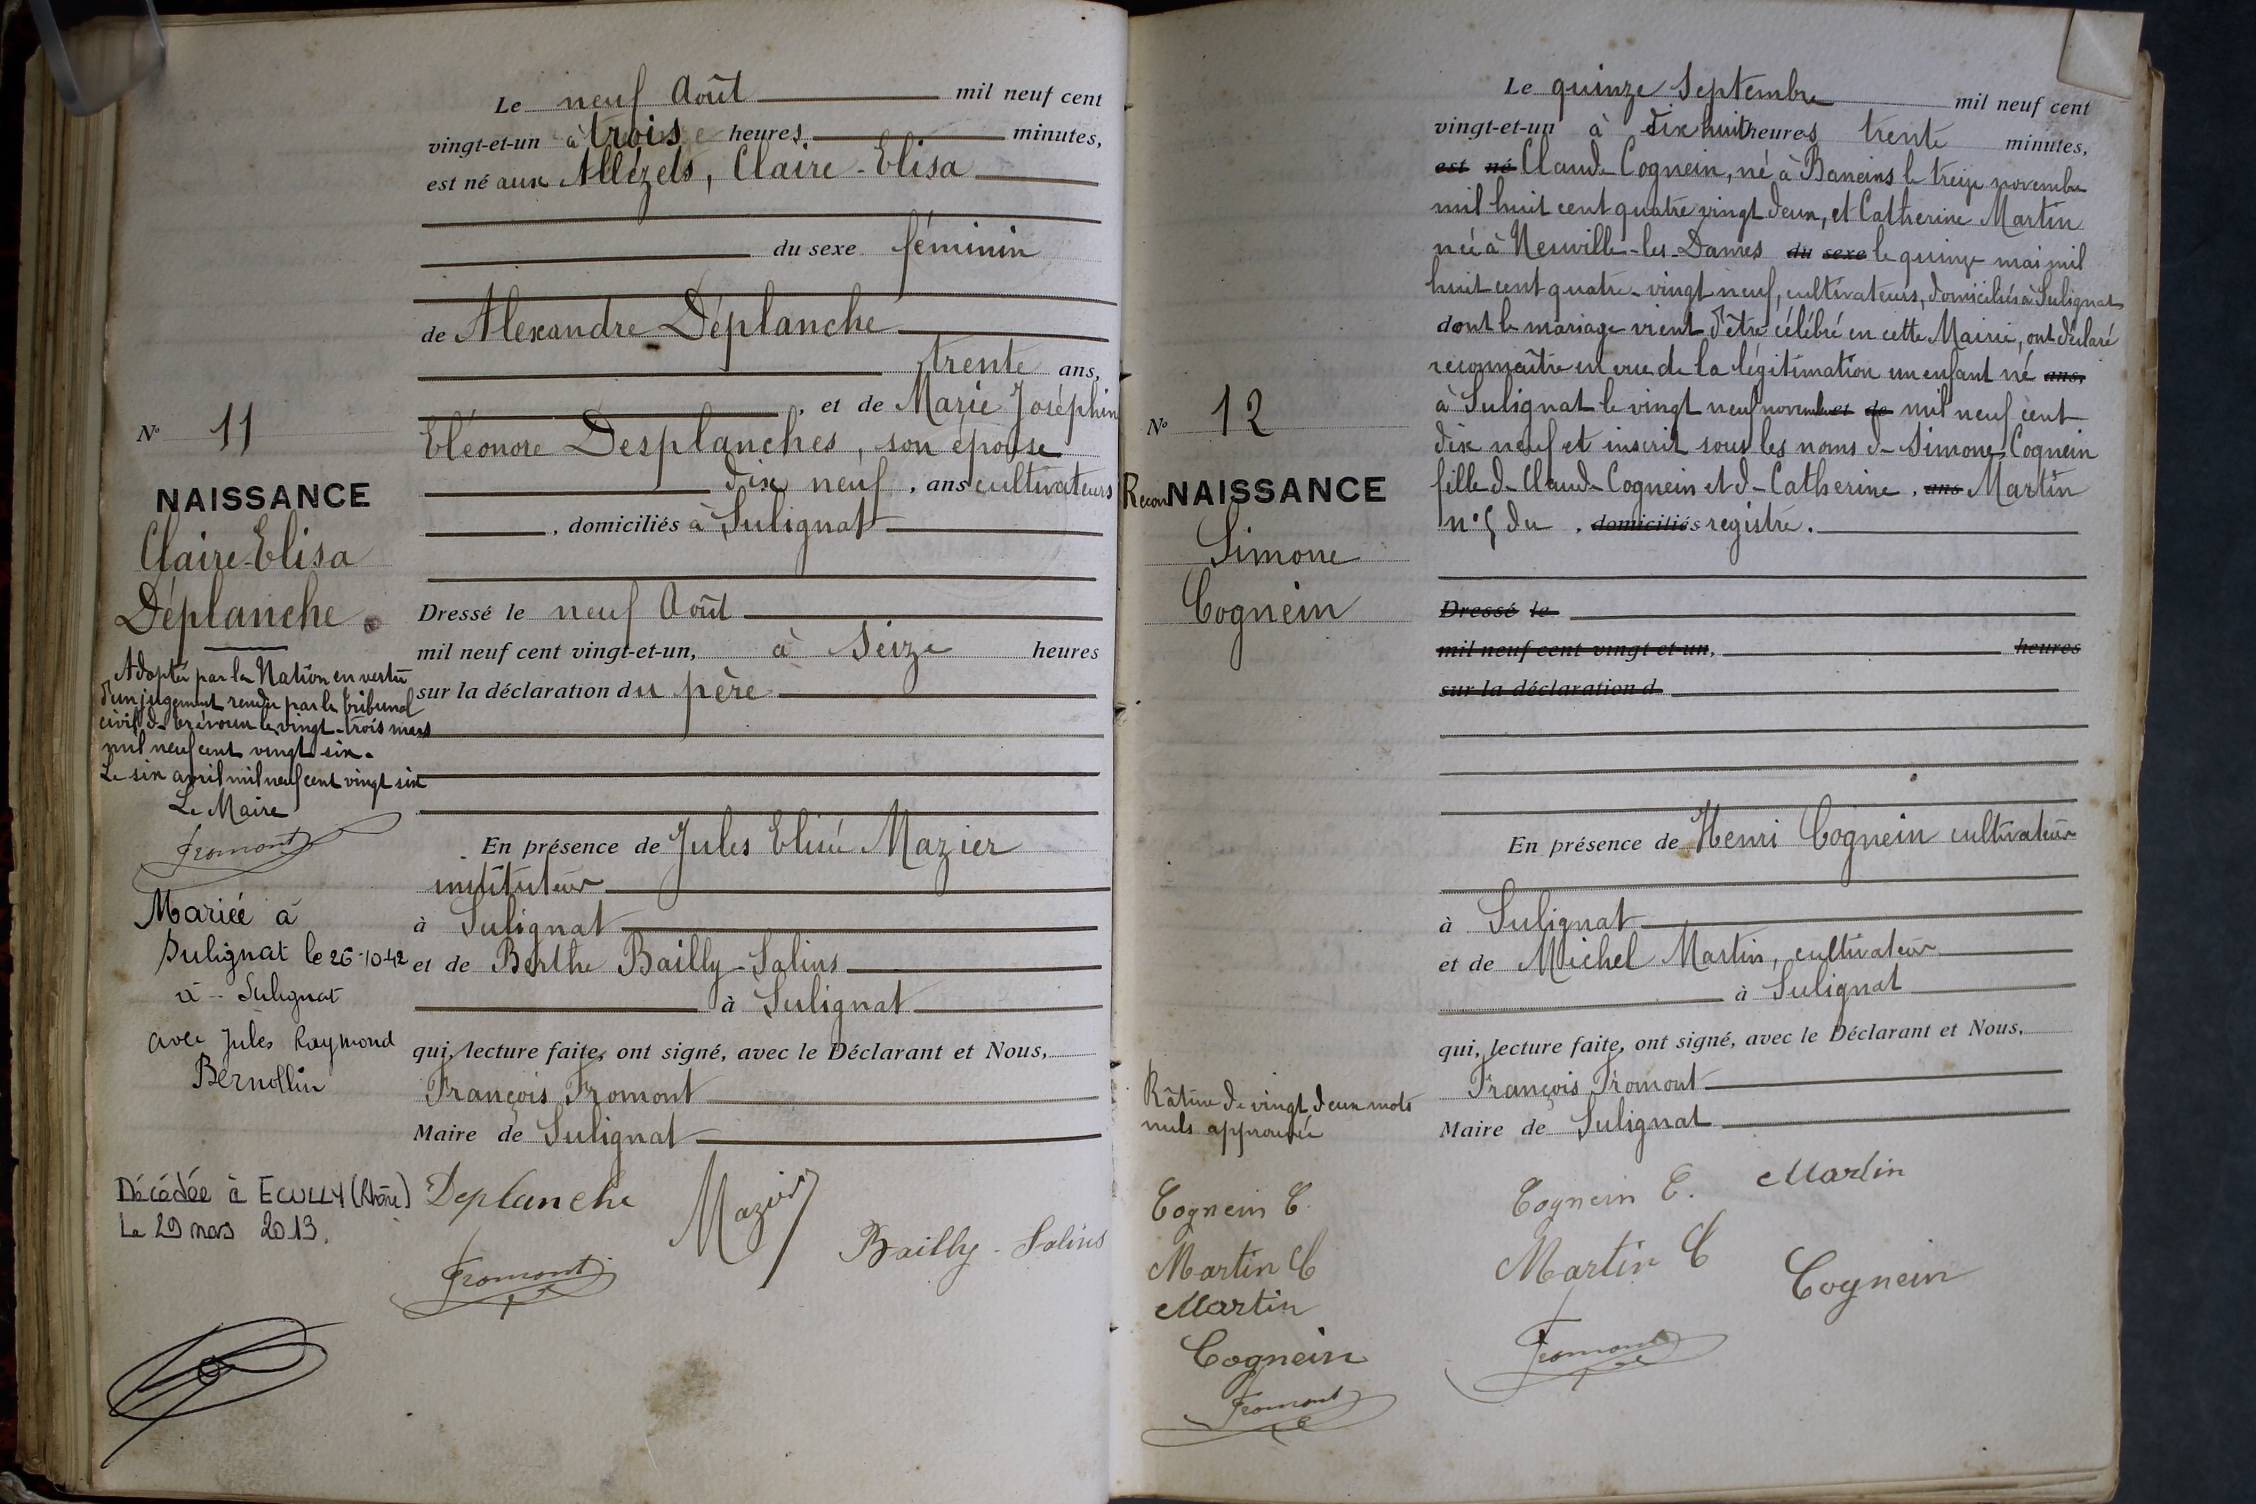 Le neuf Août mil neuf cent
vingt-et-un à trois heures minutes,
est né aux Allézets, Claire-Elisa
du sexe féminin
de Alexandre Déplanche
trente ans,
, et de Marie Joséphin
Eléonore Desplanches, son épouse
dix neuf, ans cultivateurs
, domiciliés à Sulignat
Dressé le neuf Août
mil neuf cent vingt-et-un, à Seize heures
sur la déclaration du père
En présence de Jules Elisé Mazier
instituteur
à Sulignat
et de Berthe Bailly-Salins
à Sulignat
qui, lecture faite, ont signé, avec le Déclarant et Nous,
François Fromont
Maire de Sulignat
Deplanche
Mazier
Bailly-Salins
Fromont
No 11
NAISSANCE
Claire-Elisa
Déplanche
Adoptée par la Nation en vertu
d'un jugement rendu par le tribunal
civil de Trévoux le vingt-trois mars
mil neuf cent vingt six.
Le six avril mil neuf cent vingt six
Le Maire
Fromont
Mariée à
Sulignat le 26-10-42
à Sulignat
avec Jules Raymond
Bernollin
Décédée à ECULLY (Rhône)
Le 29 mars 2013.
Le quinze Septembre mil neuf cent
vingt-et-un à dix huit heures trente minutes,
est né Claude Cognein, né à Baneins le treize novembre
mil huit cent quatre vingt deux, et Catherine Martin
née à Neuville-les-Dames du sexe le quinze mai mil
huit cent quatre-vingt neuf, cultivateurs, domiciliés à Sulignat
dont le mariage vient d'être célébré en cette Mairie, ont déclaré
reconnaître en vue de la légitimation un enfant né ans,
à Sulignat le vingt neuf novembre et de mil neuf cent
dix neuf et inscrit sous les noms de Simone Cognein
fille de Claude Cognein et de Catherine, ans Martin
n°5 du , domiciliés registre.
Dressé le
mil neuf cent vingt et un, heures
sur la déclaration d
En présence de Henri Cognein cultivateur
à Sulignat
et de Michel Martin, cultivateur
à Sulignat
qui, lecture faite, ont signé, avec le Déclarant et Nous,
François Fromont
Maire de Sulignat
Cognein C. Martin
Martin C
Cognein
Fromont
No 12
Recon NAISSANCE
Simone
Cognein
Râture de vingt deux mots
nuls approuvée
Cognein C.
Martin C
Martin
Cognein
Fromont